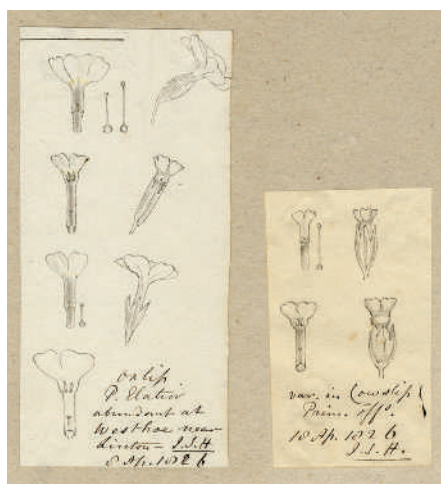 oxlip.
P. Elatior
abundant at
Westhoe near
Linton - J.S.H
8 Ap. 1826
var. in Cowslip
Prim. Off.
18 Ap. 1826
J.S.H.